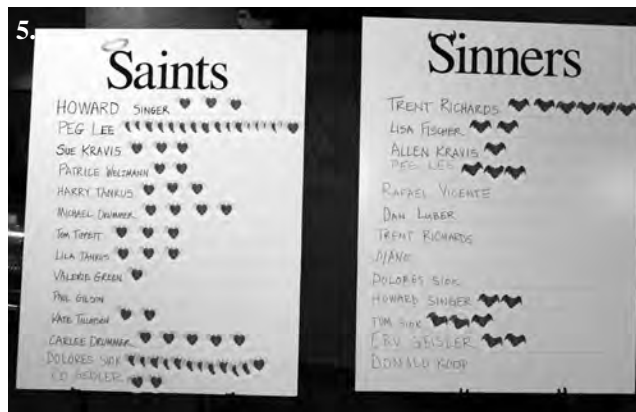 5.
Saints
HOWARD SINGER
PEG LEE
SUE KRAVIS
PATRICE WELTMANN
HARRY TANKUS
MICHAEL DRUMMER
TOM TIPPETT
LILA TANKUS
VALERIE GREEN
PHIL GILSON
KATE
CARLEE DRUMMER
DOLORES SIOK
Sinners
TRENT RICHARDS
LISA FISCHER
ALLEN KRAVIS
PEG LEE
RAFAEL VICENTE
DAN LUBER
TRENT RICHARDS
DIANE
DOLORES SIOK
HOWARD SINGER
TOM SIOK
ERV GEISLER
DONALD KOOP